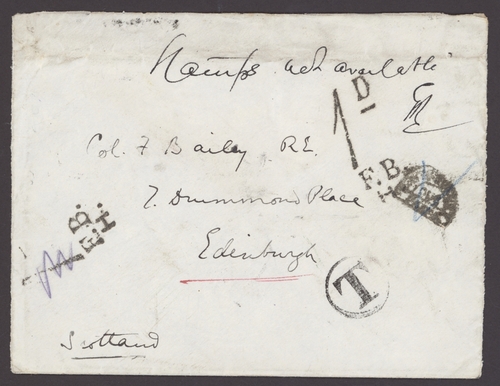 Stamps not available
1D
Col. F Bailey R.E.
F.B.
7. Drummond Place
F.B.
Edinburgh
T
Scotland